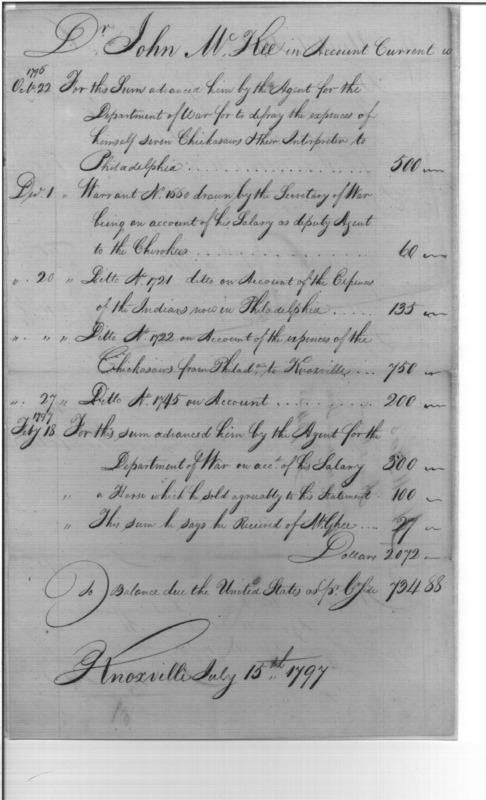 Dr. John McKee in Account Current
1796
Octr. 22 For this Sum advanced him by the Agent for the
Department of War for to defray the expences of
himself seven Chickasaws & their Interpreter to
Philadelphia ............ 500
Decr. 1 " Warrant No. 1550 drawn by the Secretary of War
being on account of his Salary as deputy Agent
to the Cherokees .......... 60
" . 20 " Ditto No. 1721 ditto on Account of the Expences
of the Indians now in Philadelphia ..... 135
" . " " Ditto No. 1722 on Account of the expences of the
Chickasaws from Philada. to Knoxville ... 750
" . 27 " Ditto No. 1745 on Account ......... 200
1797
Feby 18 For this sum advanced him by the Agent for the
Department of War on acct. of his Salary 300
" a Horse which he sold agreeably to his Statement 100
" This sum he says he Received of McGhee ... 27
Dollars 2072
To Balance due the United States as pr. 734 88
Knoxville July 15th 1797